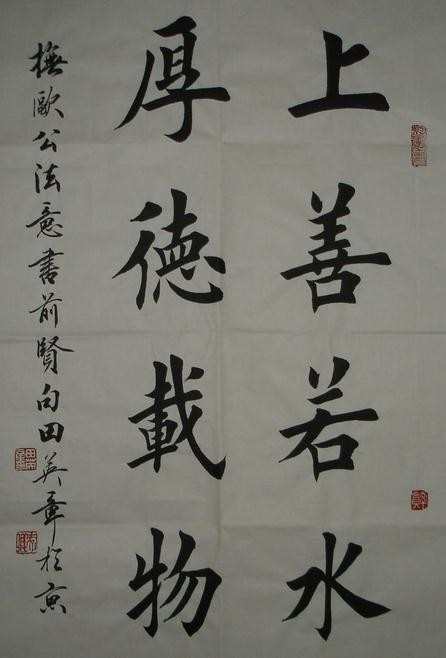 上善若水
厚德載物
撫歐公法意書前賢句田英章於京